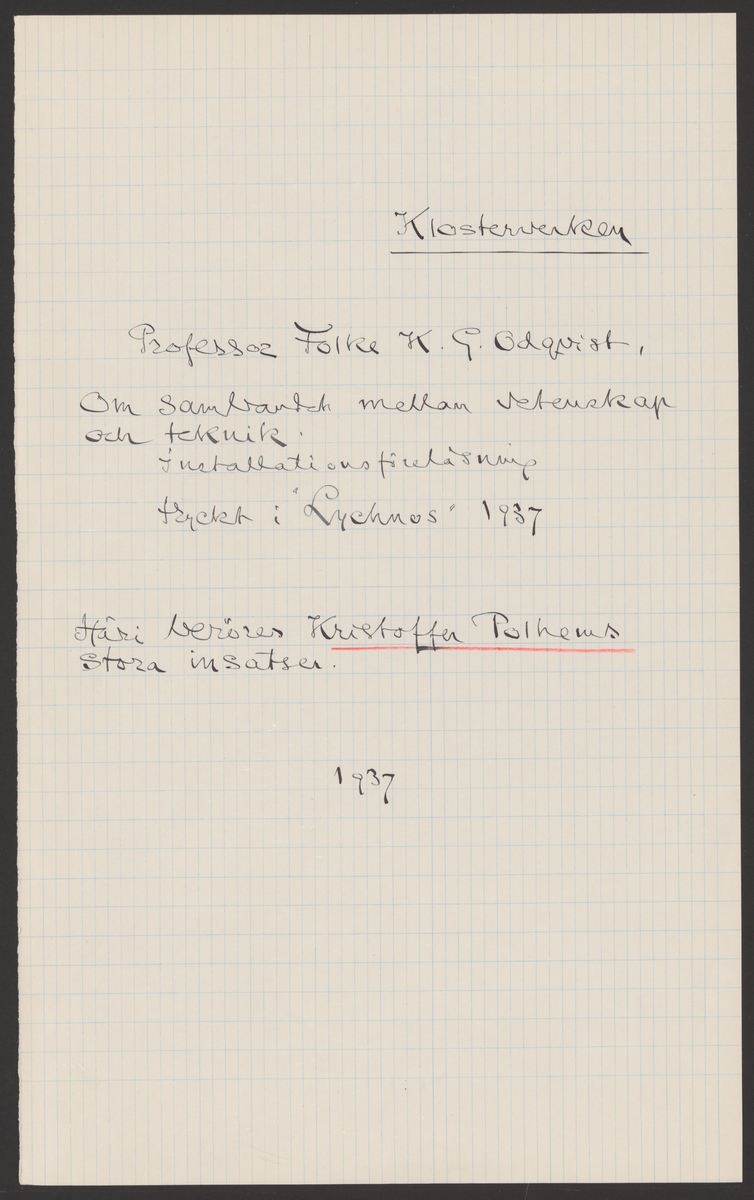 Klosterverken
Professor Folke K. G. Odqvist,
Om sambandet mellan vetenskap
och teknik.
installationsföreläsning
tryckt i "Lychnos" 1937
Häri beröres Kristoffer Polhems
stora insatser.
1937